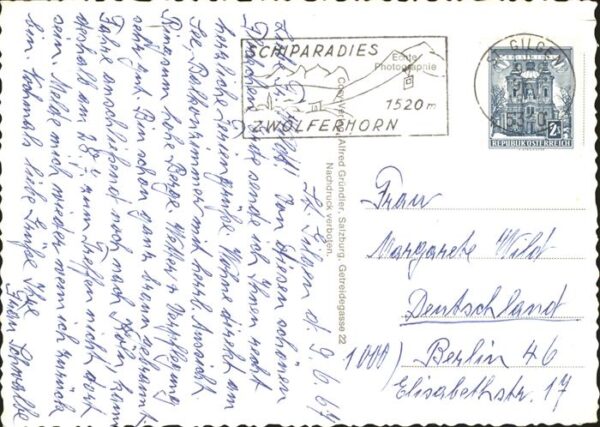 SCHIPARADIES
1520 m
ZWÖLFERHORN
Echte
Photographie
ST. GILGEN
2 S
REPUBLIK ÖSTERREICH
Alfred Gründler, Salzburg, Getreidegasse 22
Nachdruck verboten.
St. Gilgen d. 9.6.67
Liebe Frau Wildt! Von diesem schönen
sende ich Ihnen recht
herzliche Urlaubsgrüße. Wohne direkt am
See, Balkonzimmer mit herrl. Aussicht.
Ringsum hohe Berge. Wetter u. Verpflegung
sehr gut. Bin schon ganz braun gebrannt.
Fahre anschließend noch nach Köln, kann
deshalb am 28. zum Treffen nicht dort
sein. Melde mich wieder wenn ich zurück
bin. Nochmals liebe Grüße Ihre
Frau
Frau
Margarete Wildt
Deutschland
1000) Berlin 46
Elisabethstr. 17